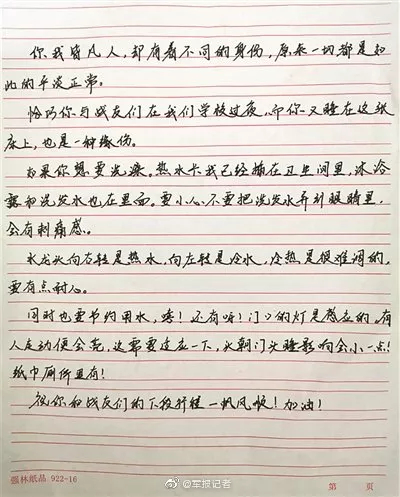 你我皆凡人,却有着不同的身份,原来一切都是如
此的平淡正常。
恰巧你与战友们在我们学校过夜,而你又睡在这张
床上,也是一种缘份。
如果你想要洗澡。热水卡我已经插在卫生间里,沐浴
露和洗发水也在里面。要小心不要把洗发水弄到眼睛里,
会有刺痛感。
水龙头向右转是热水,向左转是冷水,冷热是很难调的,
要有点耐心。
同时也要节约用水,嘻!还有呀!门口的灯是感应的,有
人走动便会亮,这需要适应一下,头朝门头睡影响会小一点!
纸巾厕所里有!
祝你和战友们的下段行程一帆风顺!加油!
强林纸品 922-16
第 页
@军报记者